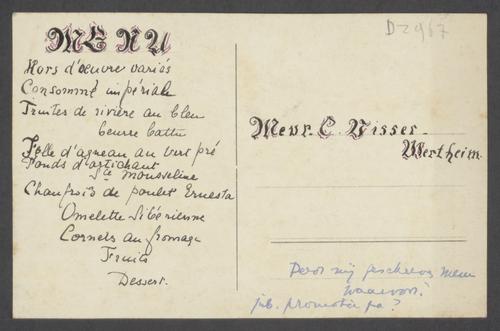 MENU
Hors d'œuvre variés
Consommé impériale
Truites de rivière au bleu
beurre battu
Selle d'agneau au vert pré
Fonds d'artichaut
Ste Mousseline
Chaufrois de poulet Ernesta
Omelette Sibérienne
Cornets au fromage
Fruits
Dessert.
D2967
Mevr. C. Visser-
Wertheim.
Door mij geschreven menu
waarvoor?
promotie pa?